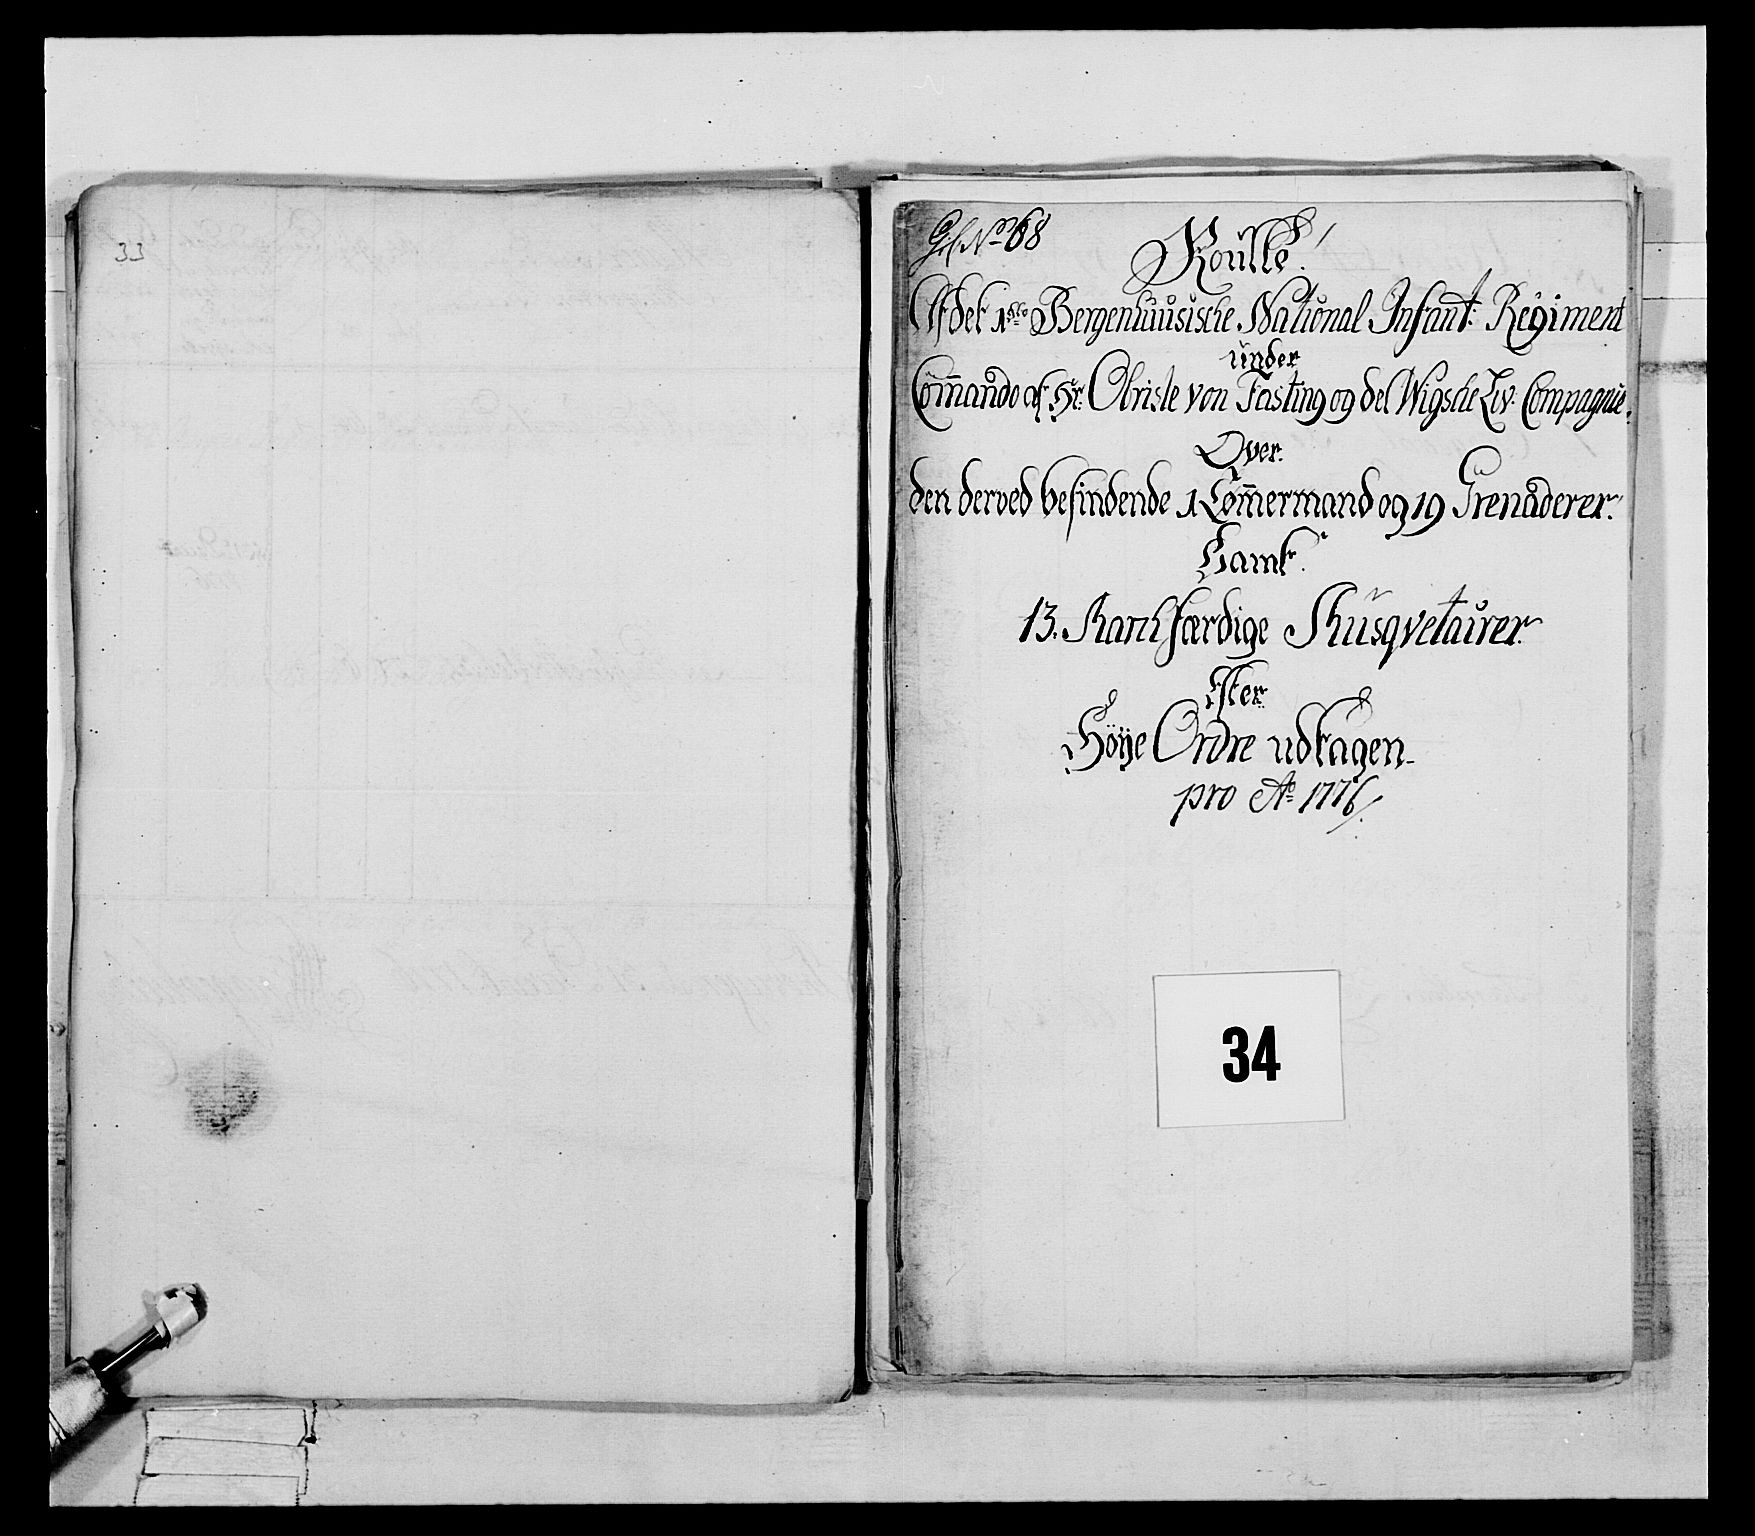 33
No 68
Roulle
Af det 1ste Bergenhuusische National Infant: Regiment
under
Commando af Hr: Obriste von Fasting og del Wigsche Liv: Compagnie.
Over
den derved befindende 1 Tømmermand og 19 Grenaderer.
Samt
13. Randfærdige Musqvetairer.
Efter
Höye Ordre udtagen
pro Ao 1776
34